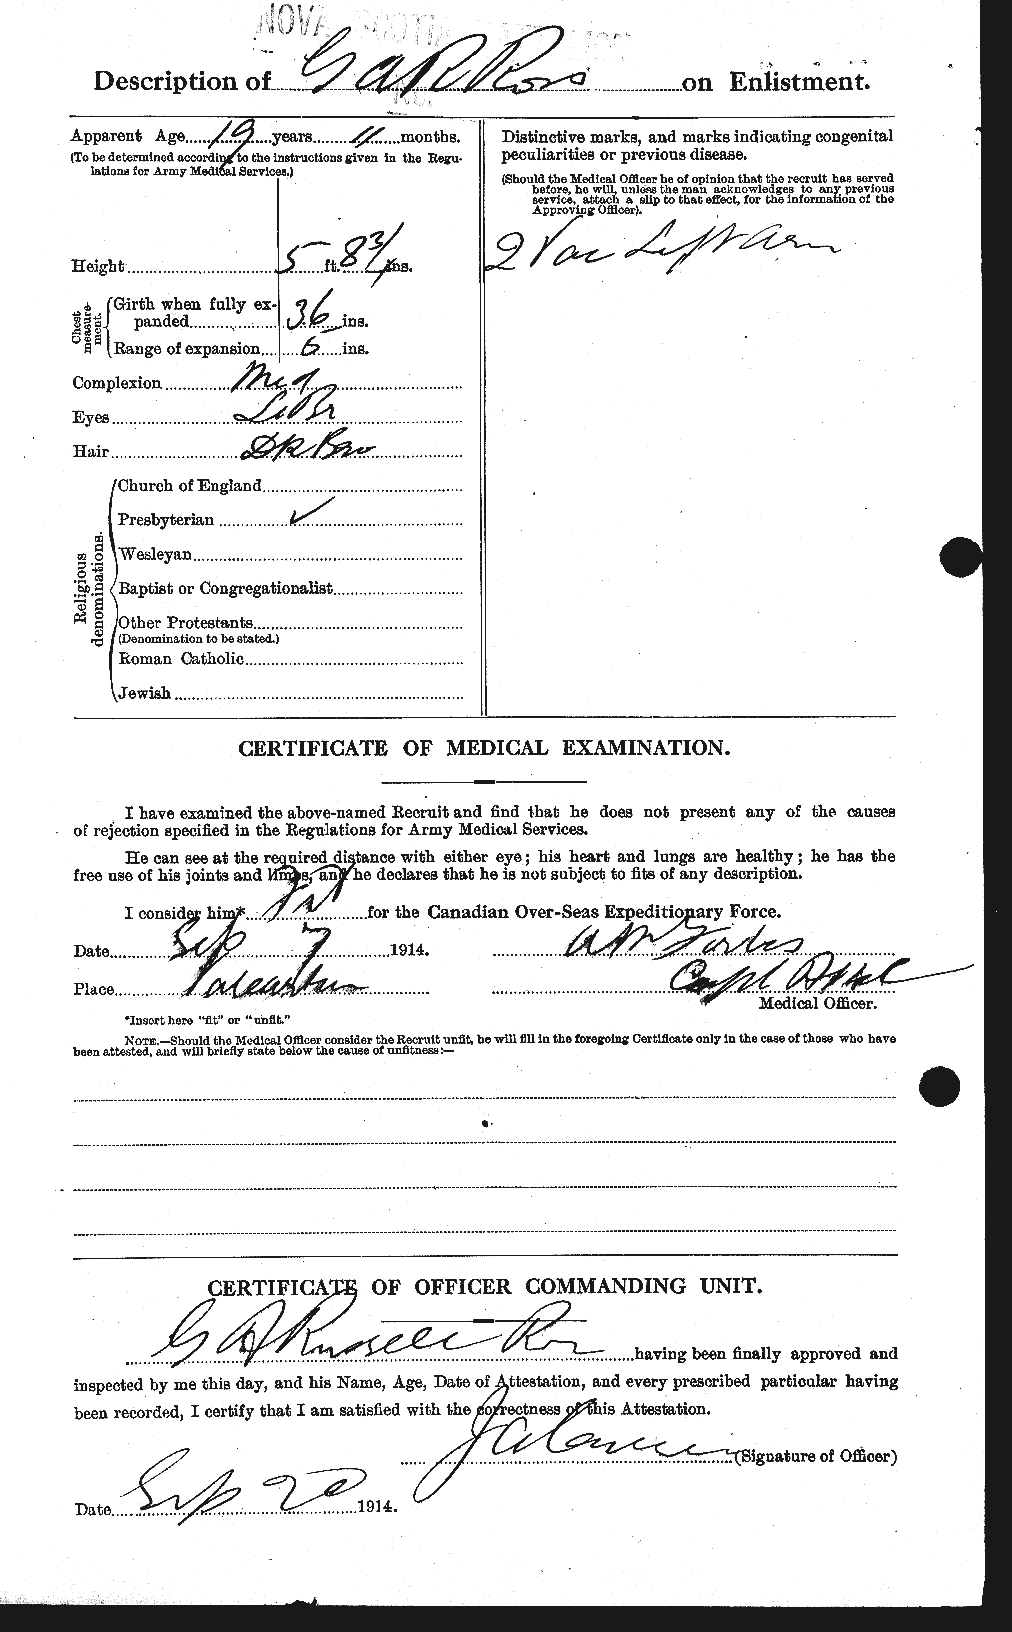 Description of G A R Ross on Enlistment.
Apparent Age 19 years 11 months.
(To be determined according to the instructions given in the Regu-
lations for Army Medical Services.)
Height 5 ft. 8 3/4 ins.
Chest measure-ment.
Girth when fully ex-
panded 36 ins.
Range of expansion 6 ins.
Complexion Med
Eyes Lt Br
Hair Dk Bro
Religious denominations.
Church of England
Presbyterian ✓
Wesleyan
Baptist or Congregationalist
Other Protestants
(Denomination to be stated.)
Roman Catholic
Jewish
Distinctive marks, and marks indicating congenital
peculiarities or previous disease.
(Should the Medical Officer be of opinion that the recruit has served
before, he will, unless the man acknowledges to any previous
service, attach a slip to that effect, for the information of the
Approving Officer).
2 Vac Left Arm
CERTIFICATE OF MEDICAL EXAMINATION.
I have examined the above-named Recruit and find that he does not present any of the causes
of rejection specified in the Regulations for Army Medical Services.
He can see at the required distance with either eye; his heart and lungs are healthy; he has the
free use of his joints and limbs, and he declares that he is not subject to fits of any description.
I consider him* Fit for the Canadian Over-Seas Expeditionary Force.
Date Sep 7 1914.
Place Valcartier
Capt
Medical Officer.
*Insert here "fit" or "unfit."
NOTE.—Should the Medical Officer consider the Recruit unfit, he will fill in the foregoing Certificate only in the case of those who have
been attested, and will briefly state below the cause of unfitness:—
CERTIFICATE OF OFFICER COMMANDING UNIT.
G A Russell Ross having been finally approved and
inspected by me this day, and his Name, Age, Date of Attestation, and every prescribed particular having
been recorded, I certify that I am satisfied with the correctness of this Attestation.
(Signature of Officer)
Date Sep 20 1914.